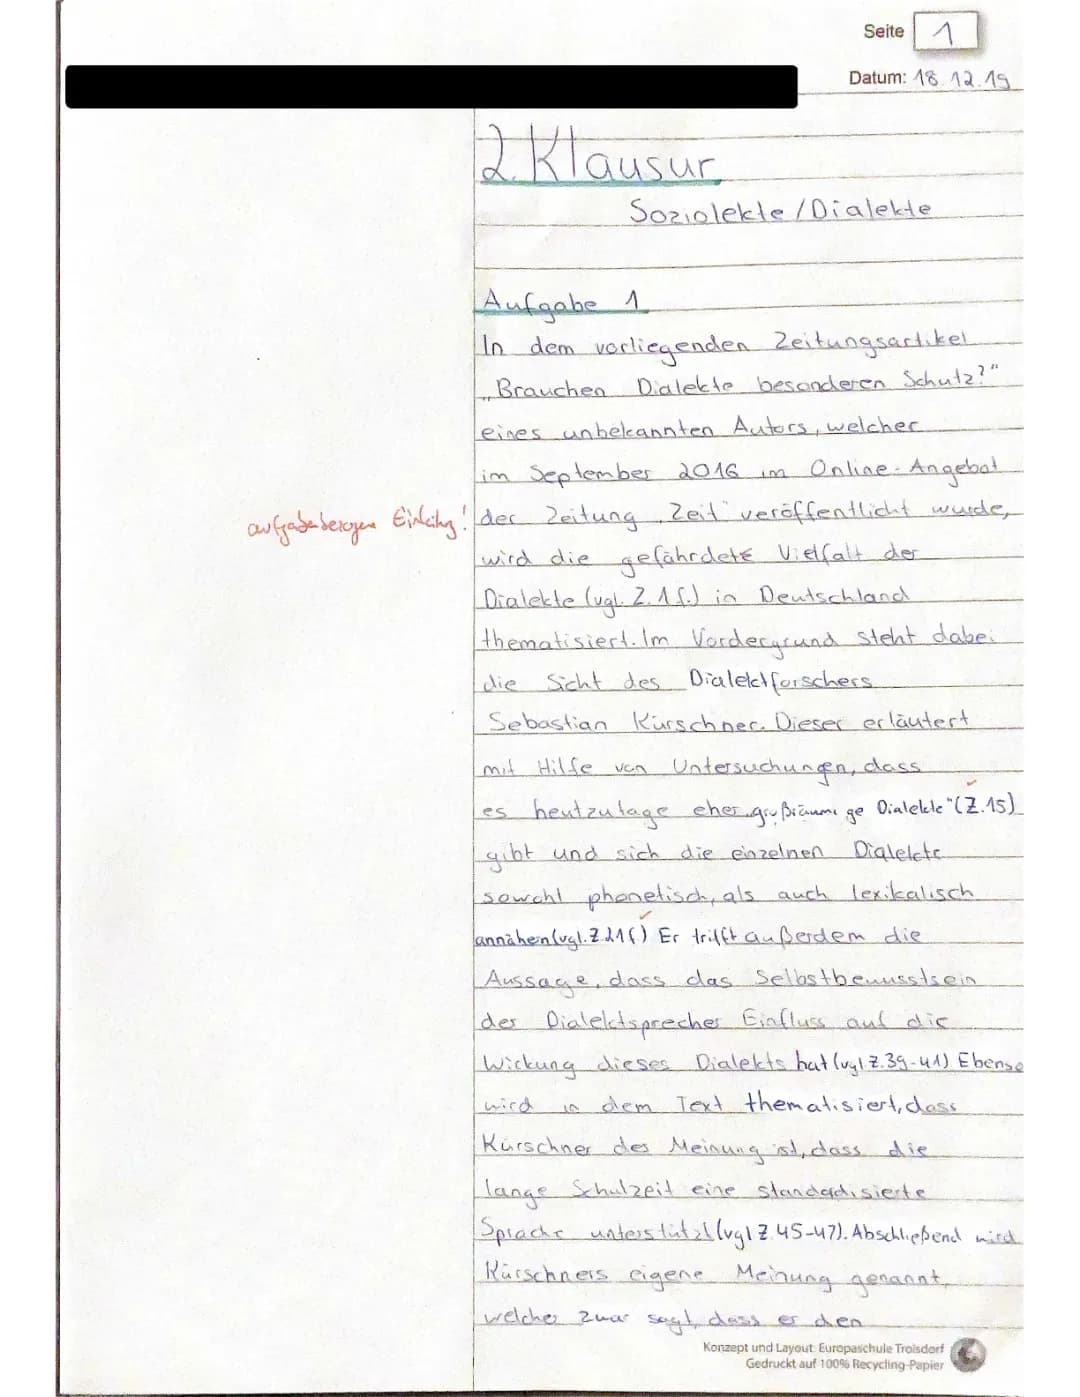 Seite 1
Datum: 18.12.19
2. Klausur
Soziolekte/Dialekte
Aufgabe 1
In dem vorliegenden Zeitungsartikel
„Brauchen Dialekte besonderen Schutz?"
eines unbekannten Autors, welcher
im September 2016 im Online-Angebot
aufgabenbezogene Einleitung!
der Zeitung „Zeit" veröffentlicht wurde,
wird die gefährdete Vielfalt der
Dialekte (vgl. Z. 1 f.) in Deutschland
thematisiert. Im Vordergrund steht dabei
die Sicht des Dialektforschers
Sebastian Kürschner. Dieser erläutert
mit Hilfe von Untersuchungen, dass
es heutzutage eher „großräumige Dialekte" (Z.15)
gibt und sich die einzelnen Dialekte
sowohl phonetisch, als auch lexikalisch
annähen (vgl. Z.21f) Er trifft außerdem die
Aussage, dass das Selbstbewusstsein
der Dialektsprecher Einfluss auf die
Wirkung dieses Dialekts hat (vgl Z.39-41) Ebenso
wird in dem Text thematisiert, dass
Kürschner der Meinung ist, dass die
lange Schulzeit eine standadisierte
Sprache unterstützt (vgl Z.45-47). Abschließend wird
Kürschners eigene Meinung genannt,
welcher zwar sagt, dass er den
Konzept und Layout: Europaschule Troisdorf
Gedruckt auf 100% Recycling-Papier